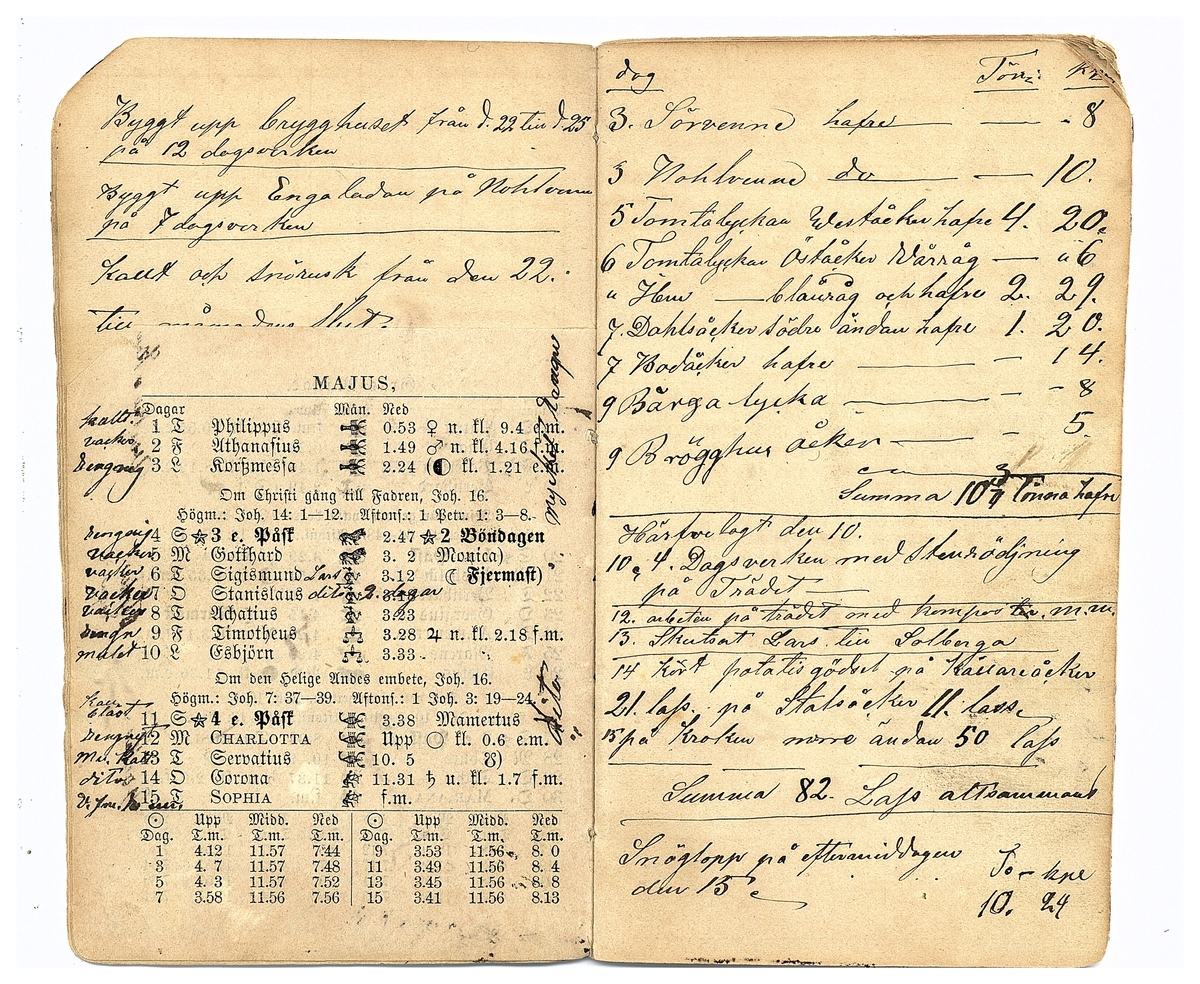 Byggt upp brygghuset från d. 22 till d. 25
på 12 dagsverken
Byggt upp Engaladan på Nohlvenne
på 7 dagsverken
Kallt och snörusk från den 22.
till månadens slut.
MAJUS,
Dagar Mån. Ned
kallt 1 T Philippus 0.53 ♀ n. kl. 9.4 e.m.
vacker 2 F Athanasius 1.49 ♂ n. kl. 4.16 f.m.
rengnig 3 L Korßmessa 2.24 (◐ kl. 1.21 e.m.
Om Christi gång till Fadren, Joh. 16.
Högm.: Joh. 14: 1—12. Aftons.: 1 Petr. 1: 3—8.
rengnig 4 S☆3 e. Påsk 2.47 ☆2 Böndagen
vacker 5 M Gotthard 3. 2 Monica)
vacker 6 T Sigismund Lars 3.12 ☾ Fjermast)
vacker 7 O Stanislaus dito 2 dagar 3.18
vacker 8 T Achatius 3.23
rengn 9 F Timotheus 3.28 ♃ n. kl. 2.18 f.m.
mulet 10 L Esbjörn 3.33
Om den Helige Andes embete, Joh. 16.
Högm.: Joh. 7: 37—39. Aftons.: 1 Joh. 3: 19—24.
11 S☆4 e. Påsk 3.38 Mamertus
rengnigt 12 M CHARLOTTA Upp ○ kl. 0.6 e.m.
13 T Servatius 10. 5 ☋)
dito 14 O Corona 11.31 ♄ u. kl. 1.7 f.m.
15 T SOPHIA f.m.
mycket
dito
☉ Upp Midd. Ned ☉ Upp Midd. Ned
Dag. T.m. T.m. T.m. Dag. T.m. T.m. T.m.
1 4.12 11.57 7.44 9 3.53 11.56 8. 0
3 4. 7 11.57 7.48 11 3.49 11.56 8. 4
5 4. 3 11.57 7.52 13 3.45 11.56 8. 8
7 3.58 11.56 7.56 15 3.41 11.56 8.13
dag Tön: kp
3. Sörvenne hafre — - 8
3 Nohlvenne do — 10.
5 Tomtalyckan Weståcker hafre 4. 20.
6 Tomtalyckan Öståcker Wårråg — " 6
" Hem — blandråg och hafre 2. 29.
7. Dahlsåcker södre ändan hafre 1. 20.
7 Bodåcker hafre — 14.
9 Bårga lycka — - 8
9 Brögghus åcker — - 5
Summa 10 3/4 Tönna hafre
Härfvelagt den 10.
10, 4. Dagsverken med Stenrödjning
på Trädet —
12. arbeten på trädet med kompost m. m.
13. Skutsat Lars till Solberga
14 Kört potatisgödsel på Kallareåcker
21. lass. på Stalsåcker 11. lass.
15 på Kroken norre ändan 50 lass
Summa 82. Lass altsammans
Snöglopp på eftermiddagen
den 15
To - kpe
10. 24